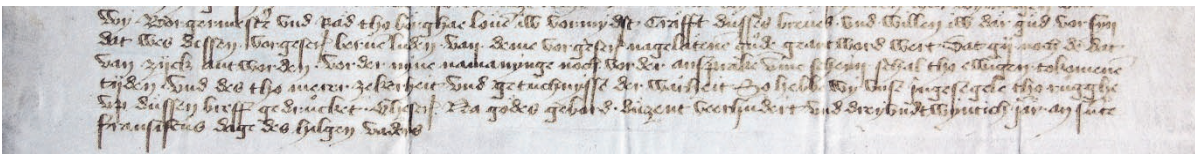 wy Borgermester vnd Rad tho borghae louen iw vormydst Crafft dusses breues vnd willen iw dar gud vor syn
dat wes dessen vorgeser beruen luden van deme vorgeser nagelatene gude geantword wert Dat gy noch de dat
van zyck antworden vorder nyne namanynge noch vorder ansprake vme schenn schal tho ewigen tokomene
tyden vnd des tho merer zekerheit vnd getuchnysse der warheit So hebbe wy vnse ingesegele tho rugghe
vp dussen breff gedrucket Na godes gebord duzent veerhundert vnd dreyvndtwyntich jar an sute
fransiskus dage des hilgen vaders